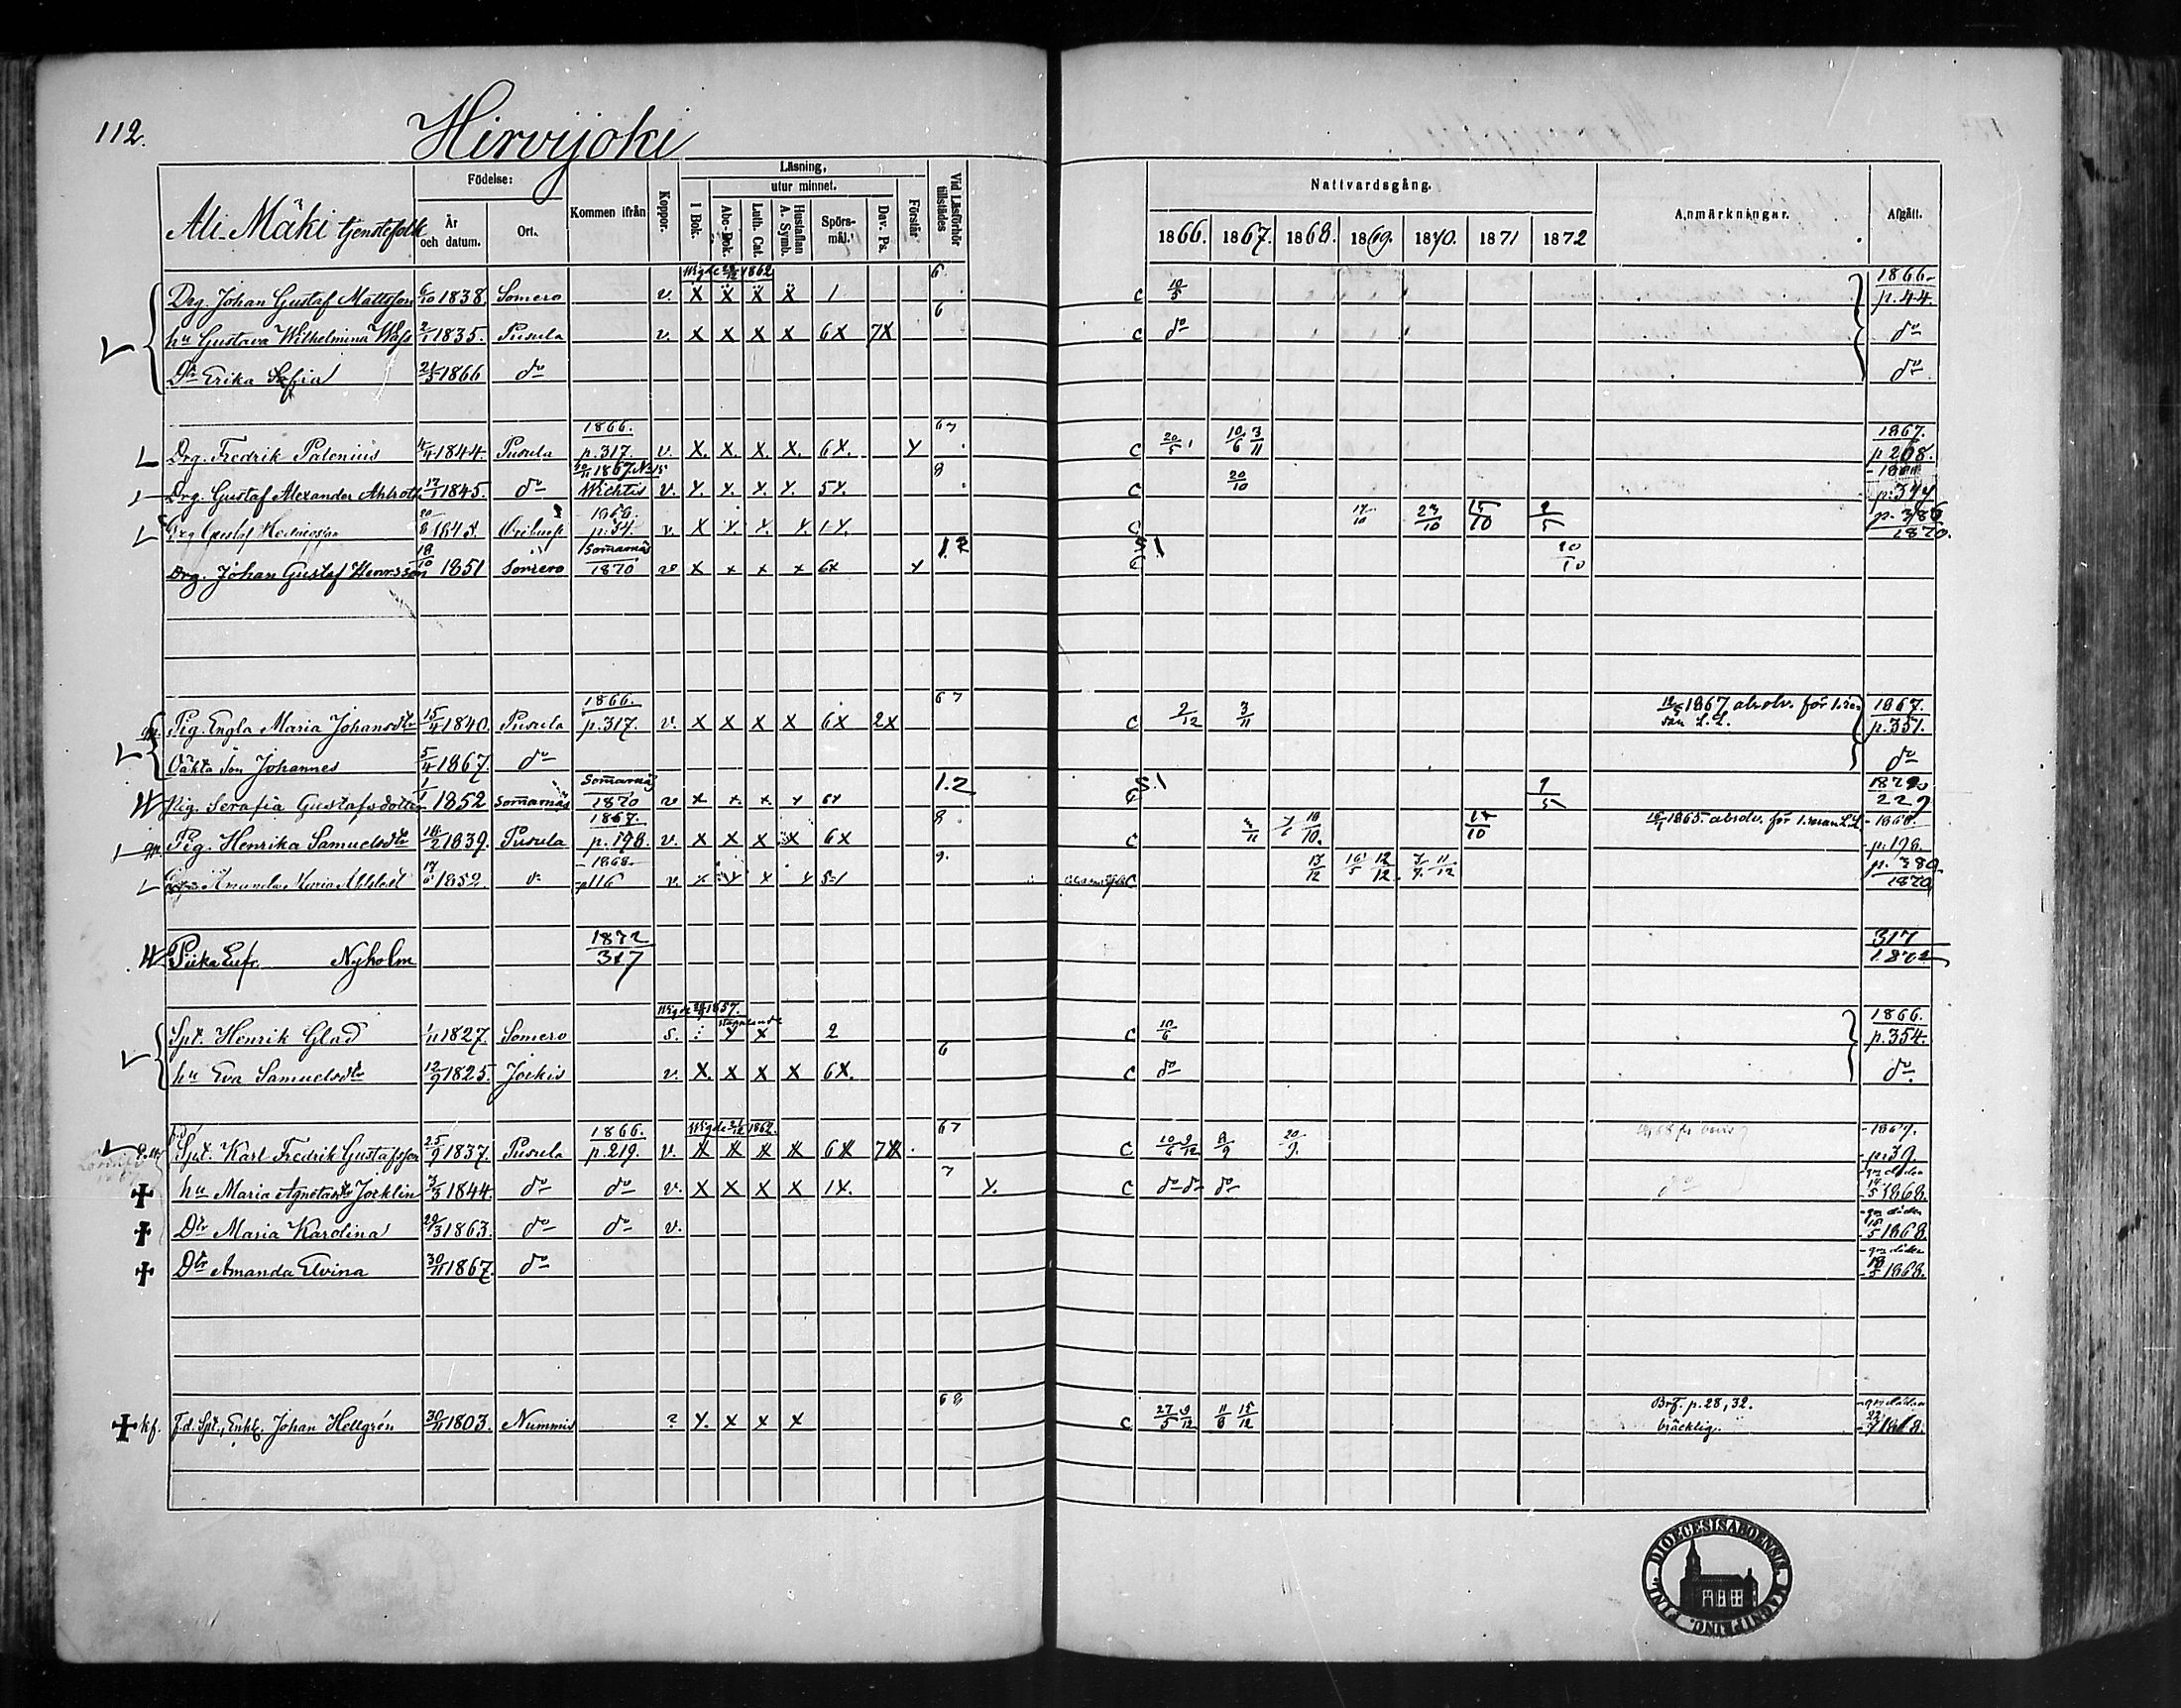 112.
Hirvijoki
Ali-Mäki tjenstefolk
Födelse:
År och datum.
Ort.
Kommen ifrån
Koppor.
Läsning,
utur minnet.
I Bok.
Abc-Bok.
Luth. Cat.
Hustaflan A. Symb.
Spörs-mål.
Dav. Ps.
Förstår
Vid Läsförhör tillstädes
Nattvardsgång.
1866. 1867. 1868. 1869. 1870. 1871 1872
Anmärkningar.
Afgått.
Wigde 1862 6 1866
Drg. Johan Gustaf Mattsson 6/10 1838. Somero v. X X X X 1 c 10/5 p. 44.
6
hu Gustava Wilhelmina 2/1 1835. Pusula v. X X X X 6X 7X c do do
Dtr Erika Sofia 1866 do do
1866. 67 1867.
Drg. Fredrik Palenius 4/4 1844. Pusula p. 317. v. X. X. X. X. 6X. Y c 20/5 10/6 3/11 p 268.
1867. 8
Drg. Gustaf Alexander Ahlroth 17/1 1845. do Wichtis v. Y. Y. Y. Y. 5Y. c 20/10 p. 344
Drg Gustaf p. 54. v. X Y. Y. Y. 1Y. c 17/10 23/10 15/10 2/5 p. 386 1870.
Somarnäs 1.2 S.1
Drg. Johan Gustaf Henrsson 18/10 1851 Somero 1870 v X x x x 6x Y c 20/10
1866. 67 1867 absolv. för 1. re- 1867.
Pig. Engla Maria Johansdtr 15/4 1840. Pusula p. 317. v. X X X X 6X 2X c 2/12 3/11 san L. L. p. 351.
Oäkta Son Johannes 5/4 1867. do do
Somarnäs 1.2 S.1
Pig. Serafia Gustafsdotter 1/1 1852 Somarnäs 1870 v x x. x. x 6x c 9/5 229
1867. 8 1865. absolv. för 1. resan L. L. 1868.
Pig. Henrika Samuelsdtr 18/2 1839. Pusula p. 198. v. X X X X 6X c 3/11 7/6 18/10. 15/10 p. 198.
1868. 9. p. 380
Amanda Maria Ahlstedt 1852. p116 v. x Y x Y 5-1 c 13/12 16/5 12/12. 11/12 1870
1872 317
Piika Eufr. Nyholm 317 1872
Wigde 1857.
1866.
Spt. Henrik Glad 1/11 1827. Somero s. Y X 2 c 10/6 p. 354.
6
hu Eva Samuelsdtr 12/9 1825. Jockis v. X. X X X 6X. c do do.
1866. Wigde 1862. 67 1869.
Spt. Karl Fredrik Gustafsson 25/9 1837. Pusula p. 219. v. X X X X 6X 7X. c 10/6 9/12 8/9 20/9. p. 39.
7 död den
hu Maria Agneta Jocklin 3/3 1844. do do v. X X X X 1X. Y. c do do do do 17/5 1868.
död den
Dtr Maria Karolina 29/3 1863. do do v. 15/5 1868.
död den
Dtr Amanda Elvina 30/11 1867. do 18/5 1868.
68 Brf. p. 28, 32. död den
kf. F.d. Spt., Enkl. Johan Hellgrén 30/11 1803. Nummis ? Y. X X X c 27/5 9/12 11/8 15/12 bräcklig. 22/7 1868.
DIOECESIS ABOENSIS. MAGNI PRINC. FINL.